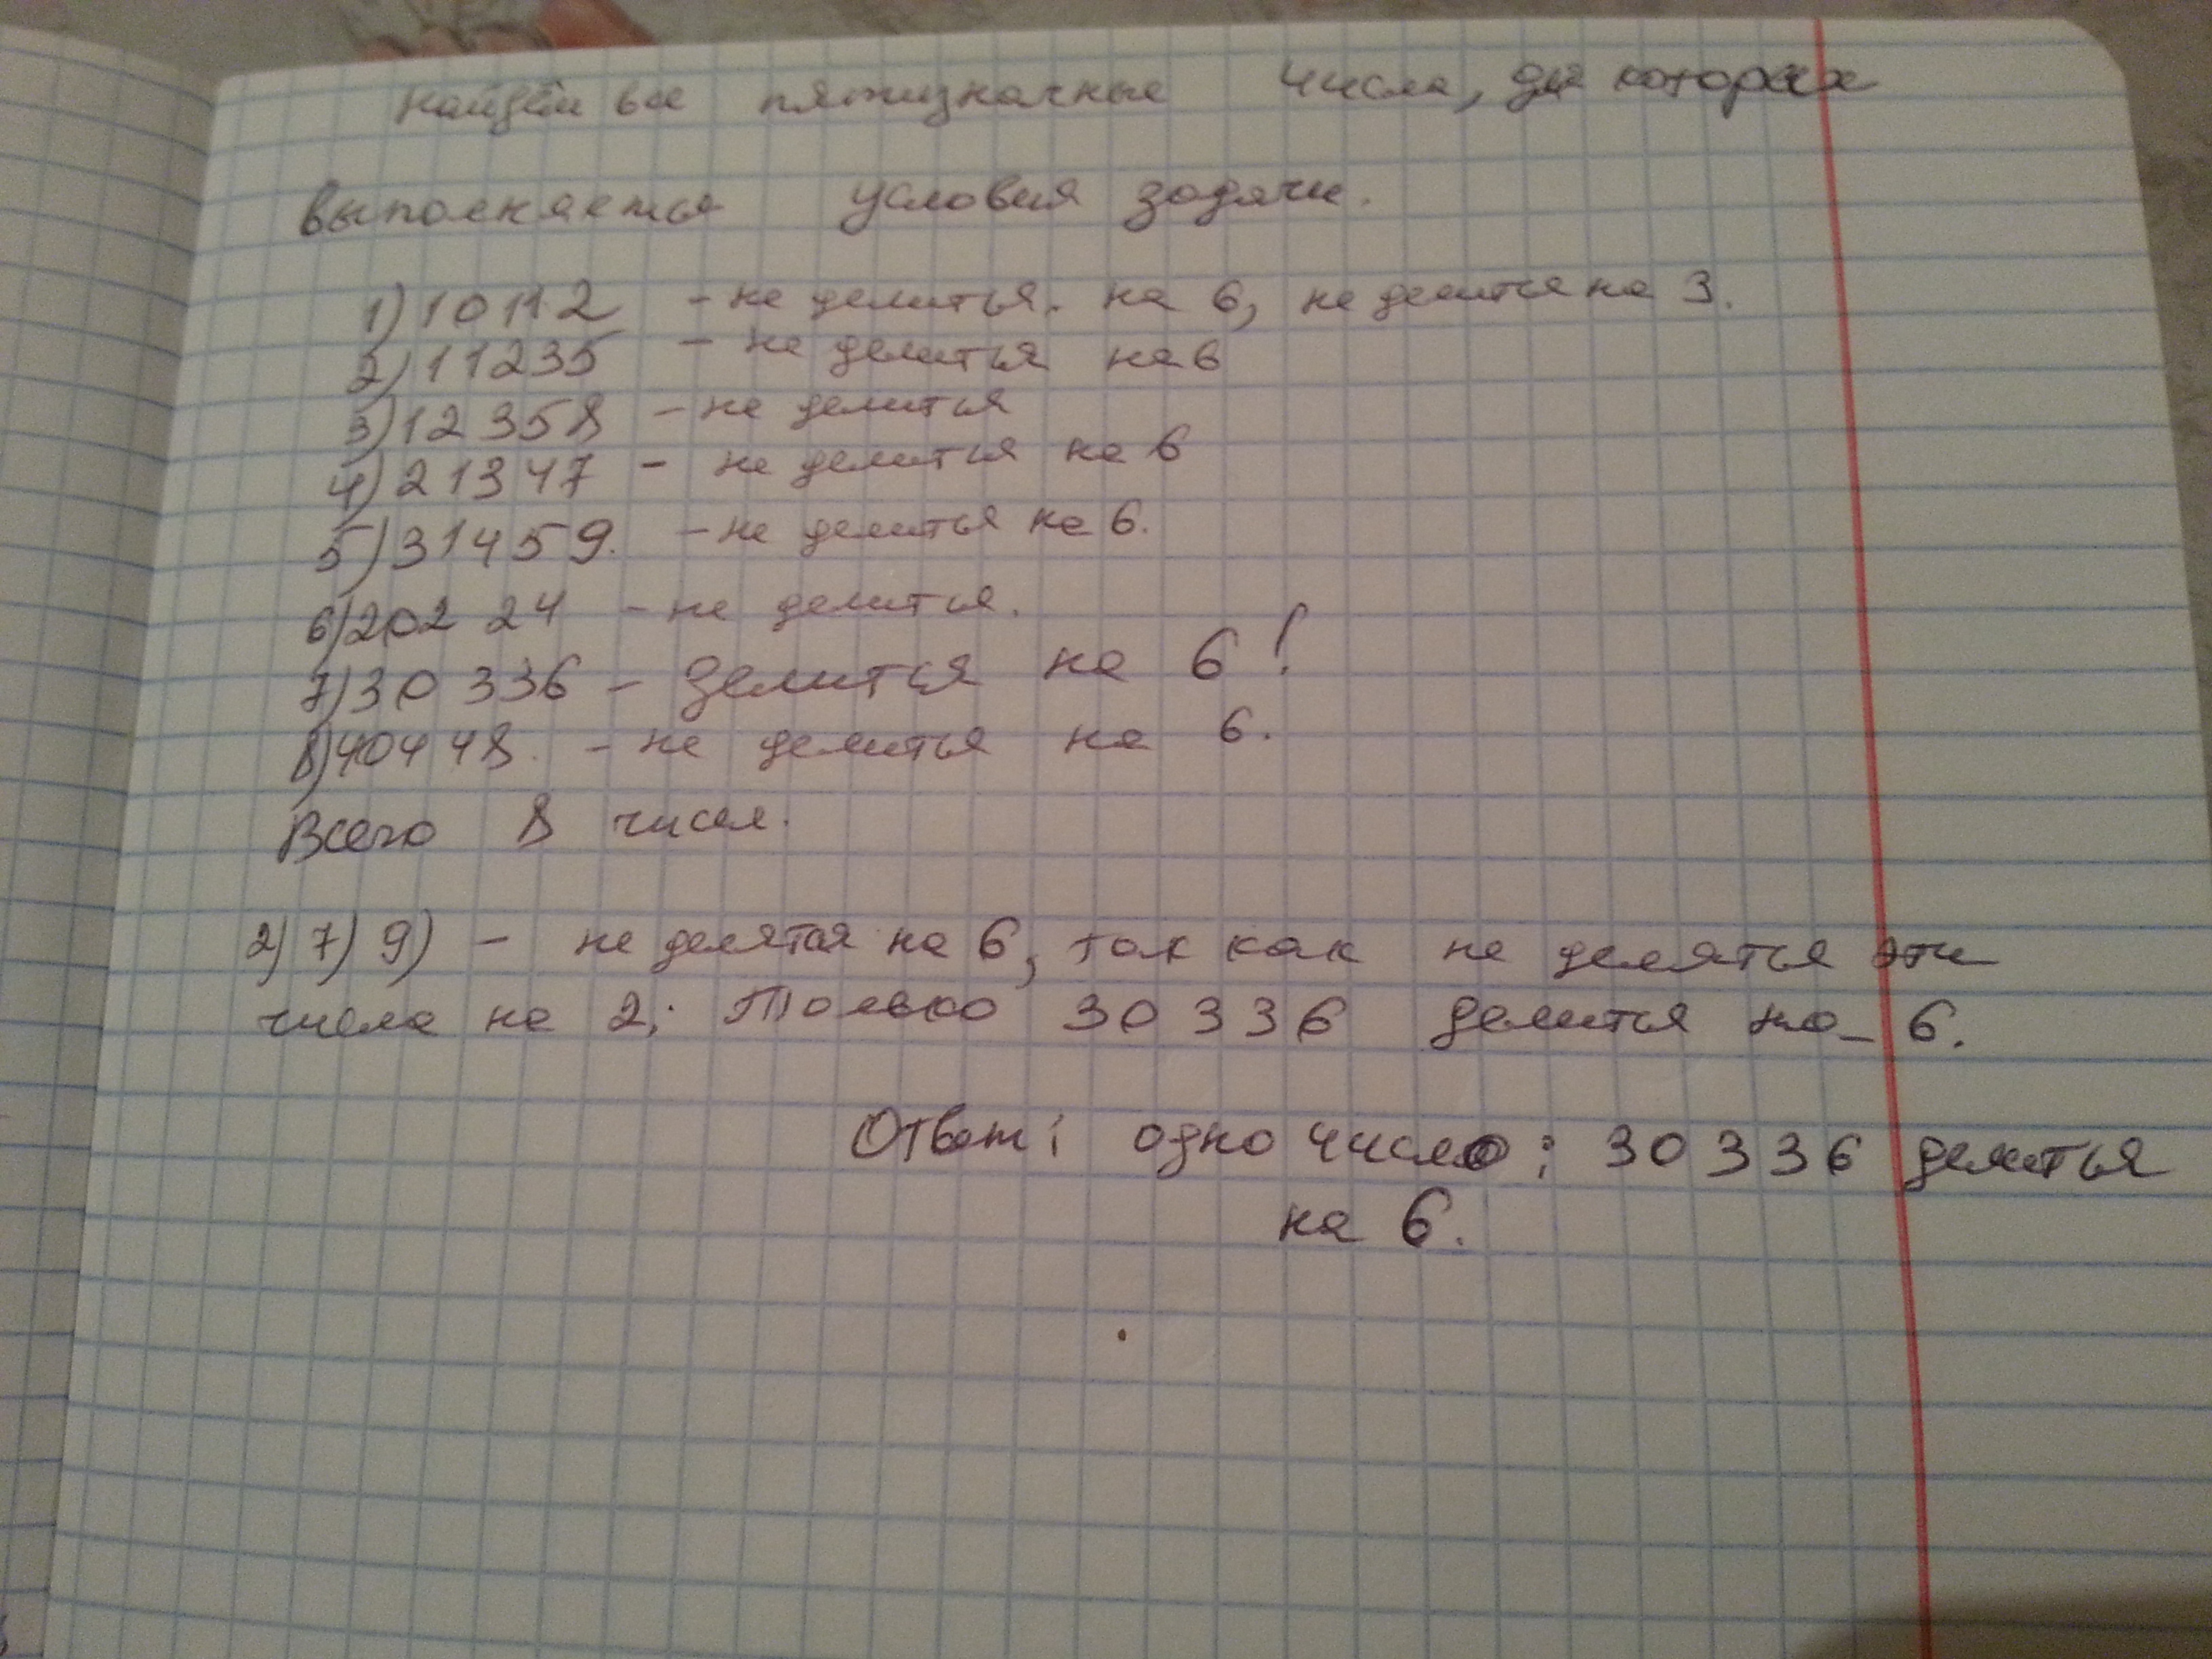 Найдём все пятизначные числа, для которых
выполняеться условия задачи.
1) 10112 - не делиться. на 6, не делится на 3.
2) 11235 - не делиться на 6
3) 12358 - не делиться
4) 21347 - не делиться на 6
5) 31459. - не делиться на 6.
6) 202 24 - не делиться.
7) 30 336 - делиться на 6!
8) 404 48. - не делиться на 6.
Всего 8 чисел.
2) 7) 9) - не делятся на 6, так как не деляться эти
числа на 2; Только 30 336 делиться на 6.
Ответ: одно число: 30 336 делиться
на 6.